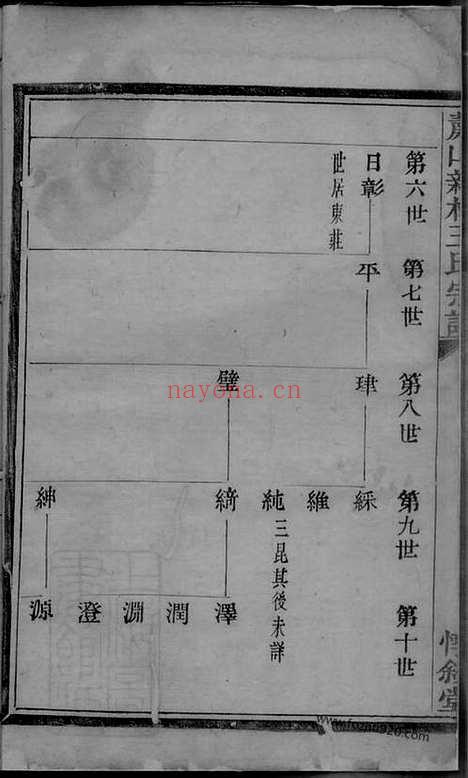 蕭山新村王氏宗譜
惇敘堂
第六世
第七世
第八世
第九世
第十世
日彰
世居東莊
平
肆
璧
綵
維
純
三昆其後未詳
綺
紳
澤
潤
淵
澄
源
nayona.cn